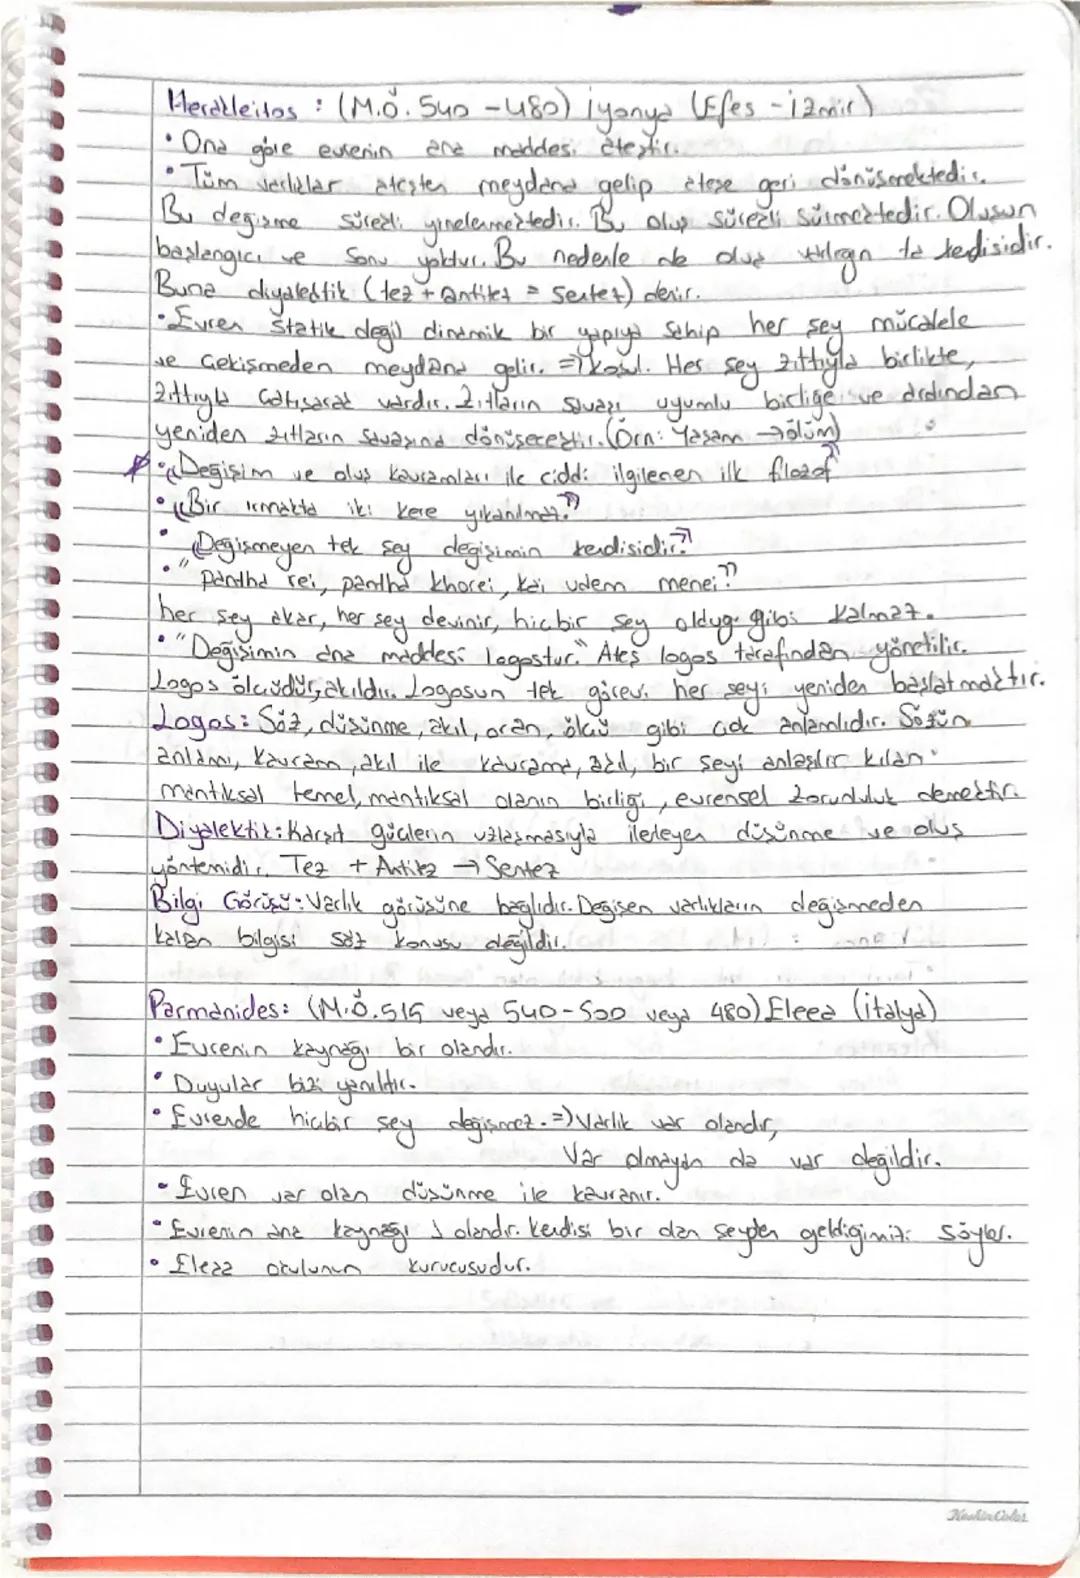 Herakleitos : (M.Ö. 540 - 480) İyonya (Efes - İzmir)
• Ona göre evrenin ana maddesi ateştir.
• Tüm varlıklar ateşten meydana gelip ateşe geri dönüşmektedir.
Bu değişme sürekli yinelenmektedir. Bu oluş sürekli sürmektedir. Oluşun
başlangıcı ve sonu yoktur. Bu nedenle de oluş kendisidir.
Buna diyalektik (tez + antitez = sentez) denir.
• Evren statik değil dinamik bir yapıya sahip her şey mücadele
ve çekişmeden meydana gelir. => Her şey zıttıyla birlikte,
zıttıyla çatışarak vardır. Zıtların savaşı uyumlu birliğe ve ardından
yeniden zıtların savaşına dönüşecektir. (Örn: Yaşam → ölüm)
• "Değişim ve oluş kavramları ile ciddi ilgilenen ilk filozof"
• "Bir ırmakta iki kere yıkanılmaz."
• "Değişmeyen tek şey değişimin kendisidir."
• "Pantha rei, pantha khorei, kai udem menei"
her şey akar, her şey devinir, hiçbir şey olduğu gibi kalmaz.
• "Değişimin ana maddesi logostur." Ateş logos tarafından yönetilir.
Logos ölçüdür, akıldır. Logosun tek görevi her şeyi yeniden başlatmaktır.
Logos: Söz, düşünme, akıl, oran, ölçü gibi çok anlamlıdır. Sözün
anlamı, kavram, akıl ile kavrama, akıl, bir şeyi anlaşılır kılan
mantıksal temel, mantıksal olanın birliği, evrensel zorunluluk demektir.
Diyalektik: Karşıt güçlerin uzlaşmasıyla ilerleyen düşünme ve oluş
yöntemidir. Tez + Antitez → Sentez
Bilgi Görüşü: Varlık görüşüne bağlıdır. Değişen varlıkların değişmeden
kalan bilgisi söz konusu değildir.
Parmenides: (M.Ö. 515 veya 540-500 veya 480) Eleea (İtalya)
• Evrenin kaynağı bir olandır.
• Duyular bizi yanıltır.
• Evrende hiçbir şey değişmez. => Varlık var olandır,
Var olmayan da var değildir.
• Evren var olan düşünme ile kavranır.
• Evrenin ana kaynağı 1 olandır. Kendisi bir olan şeyden geldiğimizi söyler.
• Eleaa okulunun kurucusudur.
KeskinColor